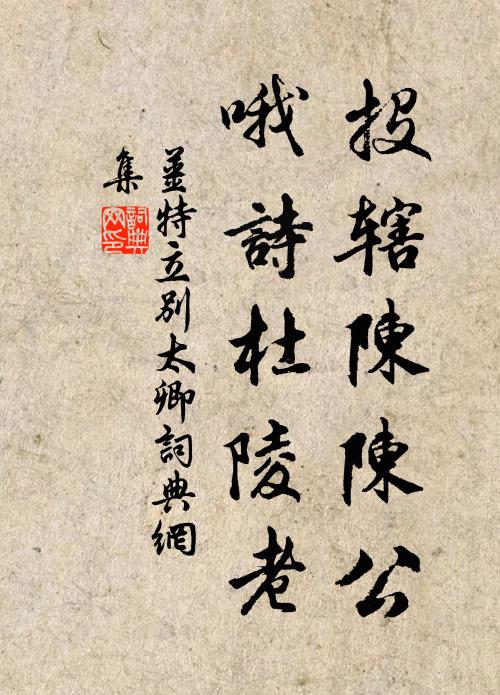 投辖陳陳公
哦詩杜陵老
姜特立別太卿詞典網
集
詞典
网印